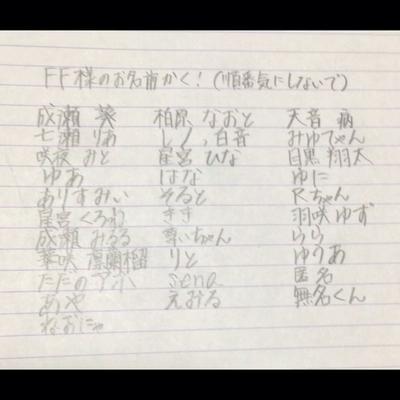 FF様のお名前かく！(順番気にしないで)
成瀬 葵 柏原 なおと 天音 病
七瀬 りあ しノ、白音 みゆちゃん
咲夜 みと 星宮 ひな 目黒 翔太
ゆあ はな ゆに
ありすみぃ そると Rちゃん
星宮 くろね きき 羽咲 ゆず
成瀬 みるる 尊いちゃん らら
りと ゆりあ
ただのアホ sena 匿名
あや えみる 無名くん
ねおにゃ